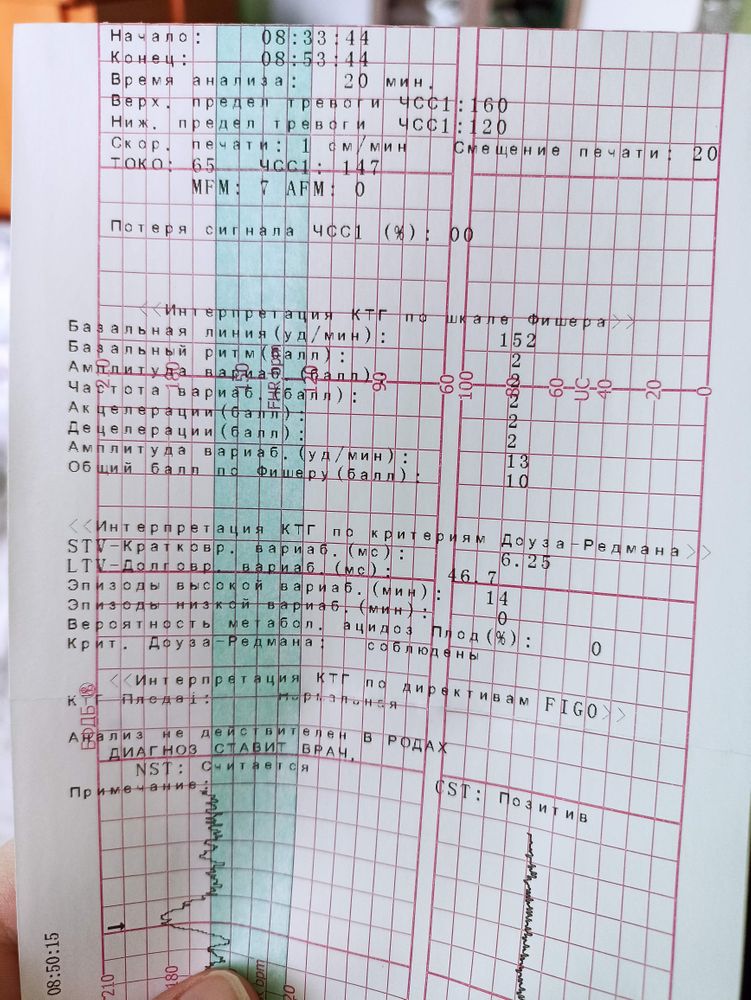 Начало: 08:33:44
Конец: 08:53:44
Время анализа: 20 мин.
Верх. предел тревоги ЧСС1:160
Ниж. предел тревоги ЧСС1:120
Скор. печати: 1 см/мин Смещение печати: 20
ТОКО: 65 ЧСС1: 147
MFM: 7 AFM: 0
Потеря сигнала ЧСС1 (%): 00
<<Интерпретация КТГ по шкале Фишера>>
Базальная линия(уд/мин): 152
Базальный ритм(балл): 2
Амплитуда вариаб.(балл): 2
Частота вариаб.(балл): 2
Акцелерации(балл): 2
Децелерации(балл): 2
Амплитуда вариаб.(уд/мин): 13
Общий балл по Фишеру(балл): 10
210 180 150 FHR 120 90 60 100 80 UC 40 20 0
<<Интерпретация КТГ по критериям Доуза-Редмана>>
STV-Кратковр. вариаб.(мс): 6.25
LTV-Долговр. вариаб.(мс): 46.7
Эпизоды высокой вариаб.(мин): 14
Эпизоды низкой вариаб.(мин): 0
Вероятность метабол. ацидоз Плод(%): 0
Крит. Доуза-Редмана: соблюдены
<<Интерпретация КТГ по директивам FIGO>>
КТГ Плода1: Нормальная
Анализ не действителен В РОДАХ
ДИАГНОЗ СТАВИТ ВРАЧ.
NST: Считается
CST: Позитив
Примечание:
08:50:15
210 180